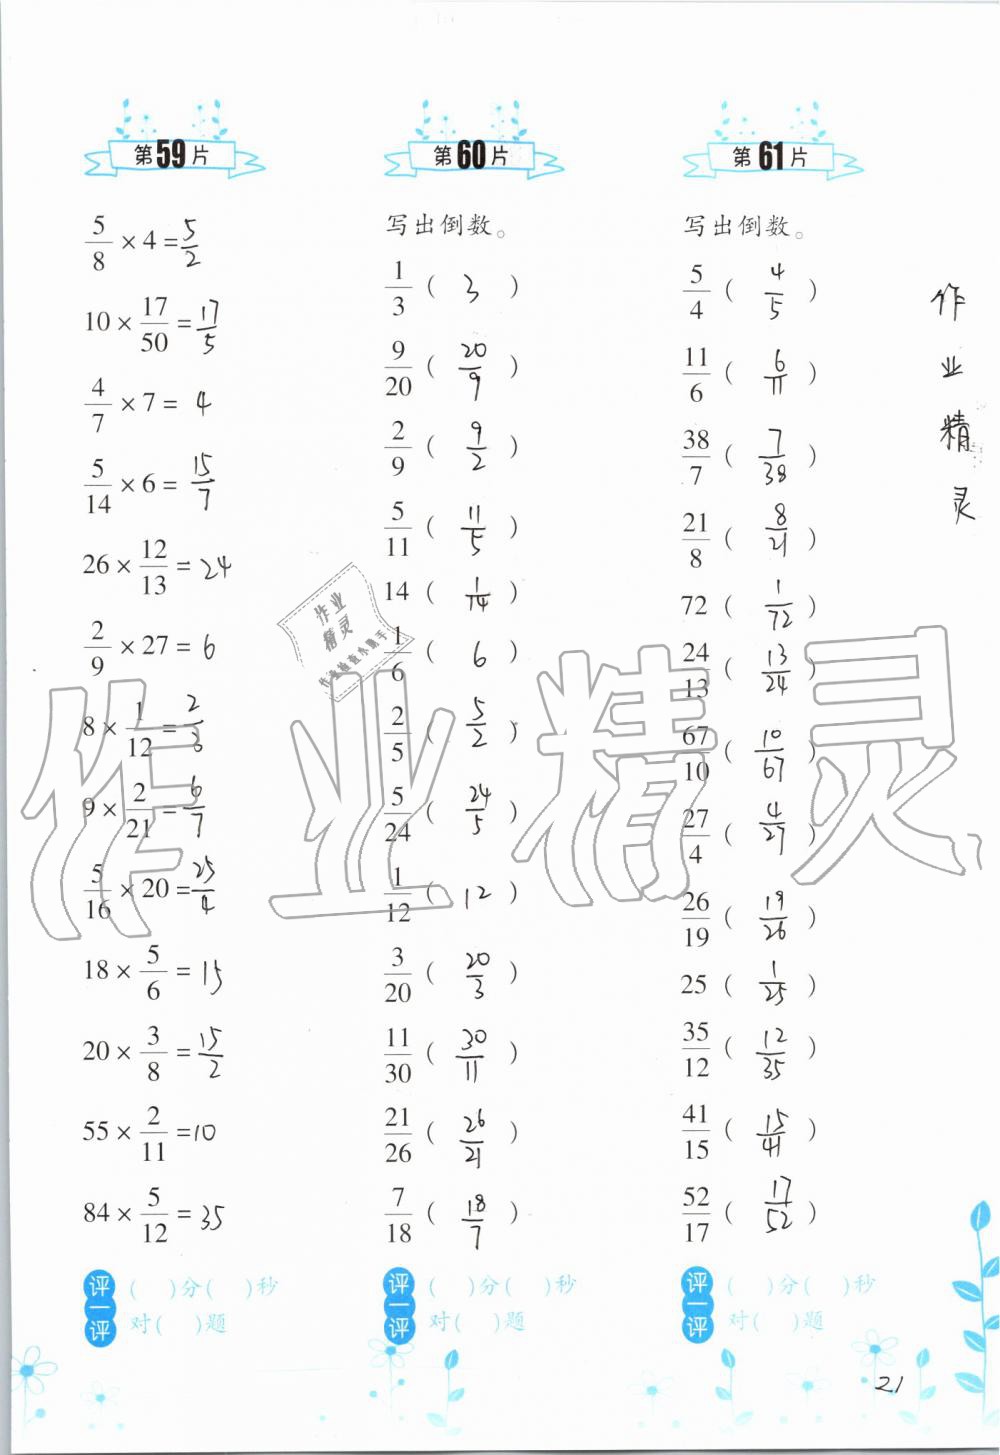 第59片
5/8 × 4 = 5/2
10 × 17/50 = 17/5
4/7 × 7 = 4
5/14 × 6 = 15/7
26 × 12/13 = 24
2/9 × 27 = 6
8 × 1/12 = 2/3
9 × 2/21 = 6/7
5/16 × 20 = 25/4
18 × 5/6 = 15
20 × 3/8 = 15/2
55 × 2/11 = 10
84 × 5/12 = 35
评一评
( )分( )秒
对( )题
第60片
写出倒数。
1/3 ( 3 )
9/20 ( 20/9 )
2/9 ( 9/2 )
5/11 ( 11/5 )
14 ( 1/14 )
1/6 ( 6 )
2/5 ( 5/2 )
5/24 ( 24/5 )
1/12 ( 12 )
3/20 ( 20/3 )
11/30 ( 30/11 )
21/26 ( 26/21 )
7/18 ( 18/7 )
评一评
( )分( )秒
对( )题
第61片
写出倒数。
5/4 ( 4/5 )
11/6 ( 6/11 )
38/7 ( 7/38 )
21/8 ( 8/21 )
72 ( 1/72 )
24/13 ( 13/24 )
67/10 ( 10/67 )
27/4 ( 4/27 )
26/19 ( 19/26 )
25 ( 1/25 )
35/12 ( 12/35 )
41/15 ( 15/41 )
52/17 ( 17/52 )
评一评
( )分( )秒
对( )题
作
业
精
灵
作业
精灵
作业精灵
21